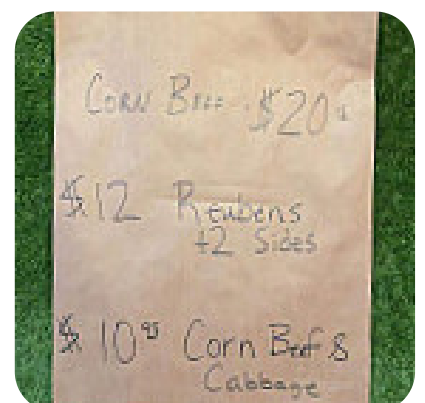 Corn Beef $20
$12 Reubens
+2 Sides
$10.95 Corn Beef &
Cabbage